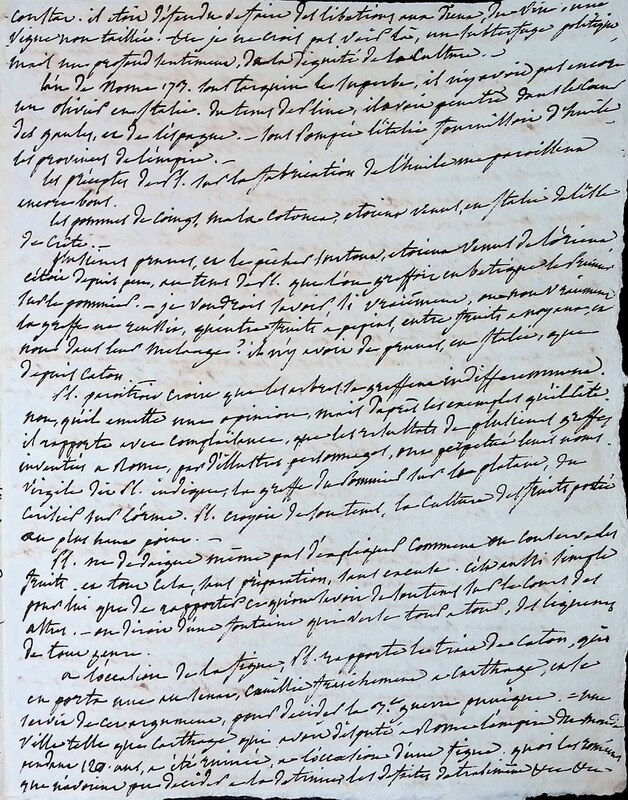 conster. il étoit défendu de faire des libations aux dieux, du vin d'une
vigne non taillée. &c je ne crois pas voir là, un subterfuge politique
mais un profond sentiment, de la dignité de la culture.
l'an de Rome 173. sous tarquin le superbe, il n'y avoit pas encore
un olivier en italie. du tems de pline, il avoit pénétré dans le
des gaules, et de l'espagne. — sous pompée l'italie fournissoit d'huile
les provinces de l'empire. —
les préceptes de pl. sur la fabrication de l'huile me paroissent
encore bons.
les pommes de coings, mala cotonea, étoient venus, en italie de l'isle
de Crète. —
plusieurs prunes, et le pêcher surtout, étoient venus de l'orient
c'étoit depuis peu, au tems de pl. que l'on greffoit en betique le prunier
sur le pommier. — je voudrois savoir, si vraiment, ou non vraiment
la greffe ne réussit, qu'entre fruits a pepins, entre fruits a noyaux, et
non dans leur mélange? il n'y avoit de prunes, en italie, que
depuis Caton. —
pl. paroitroit croire que les arbres se greffent indifferemment.
non, qu'il emette une opinion, mais d'après les exemples qu'il cite
il rapporte avec complaisance, que les resultats de plusieurs greffes
inventées a Rome, par d'illustres personnages, ont perpétué leurs noms.
virgile dit pl. indique, la greffe du pommier sur le platane, du
cerisier sur l'orme. pl. croyoit de son tems, la culture des fruits portée
au plus haut point. —
pl. ne dédaigne même pas d'expliquer comment on conserve les
fruits. et tout cela, sans préparation, sans excuse. c'est aussi simple
pour lui que de rapporter ce qu'on savoit de son tems sur le cours des
astres. — on diroit d'une fontaine qui verse tour a tour, des liqueurs
de tout genre.
a l'occasion de la figue, pl. rapporte le trait de Caton, qui
en porta une au senat, cueillie fraichement a carthage, et se
servit de cet argument, pour décider la 3e guerre punique. = une
ville telle que carthage qui avoit disputé a Rome l'empire du monde
pendant 120. ans, a été ruinée, a l'occasion d'une figue, quoi les romains
que n'avoient pu décider a la détruire, les défaites de trasimène &c &c —